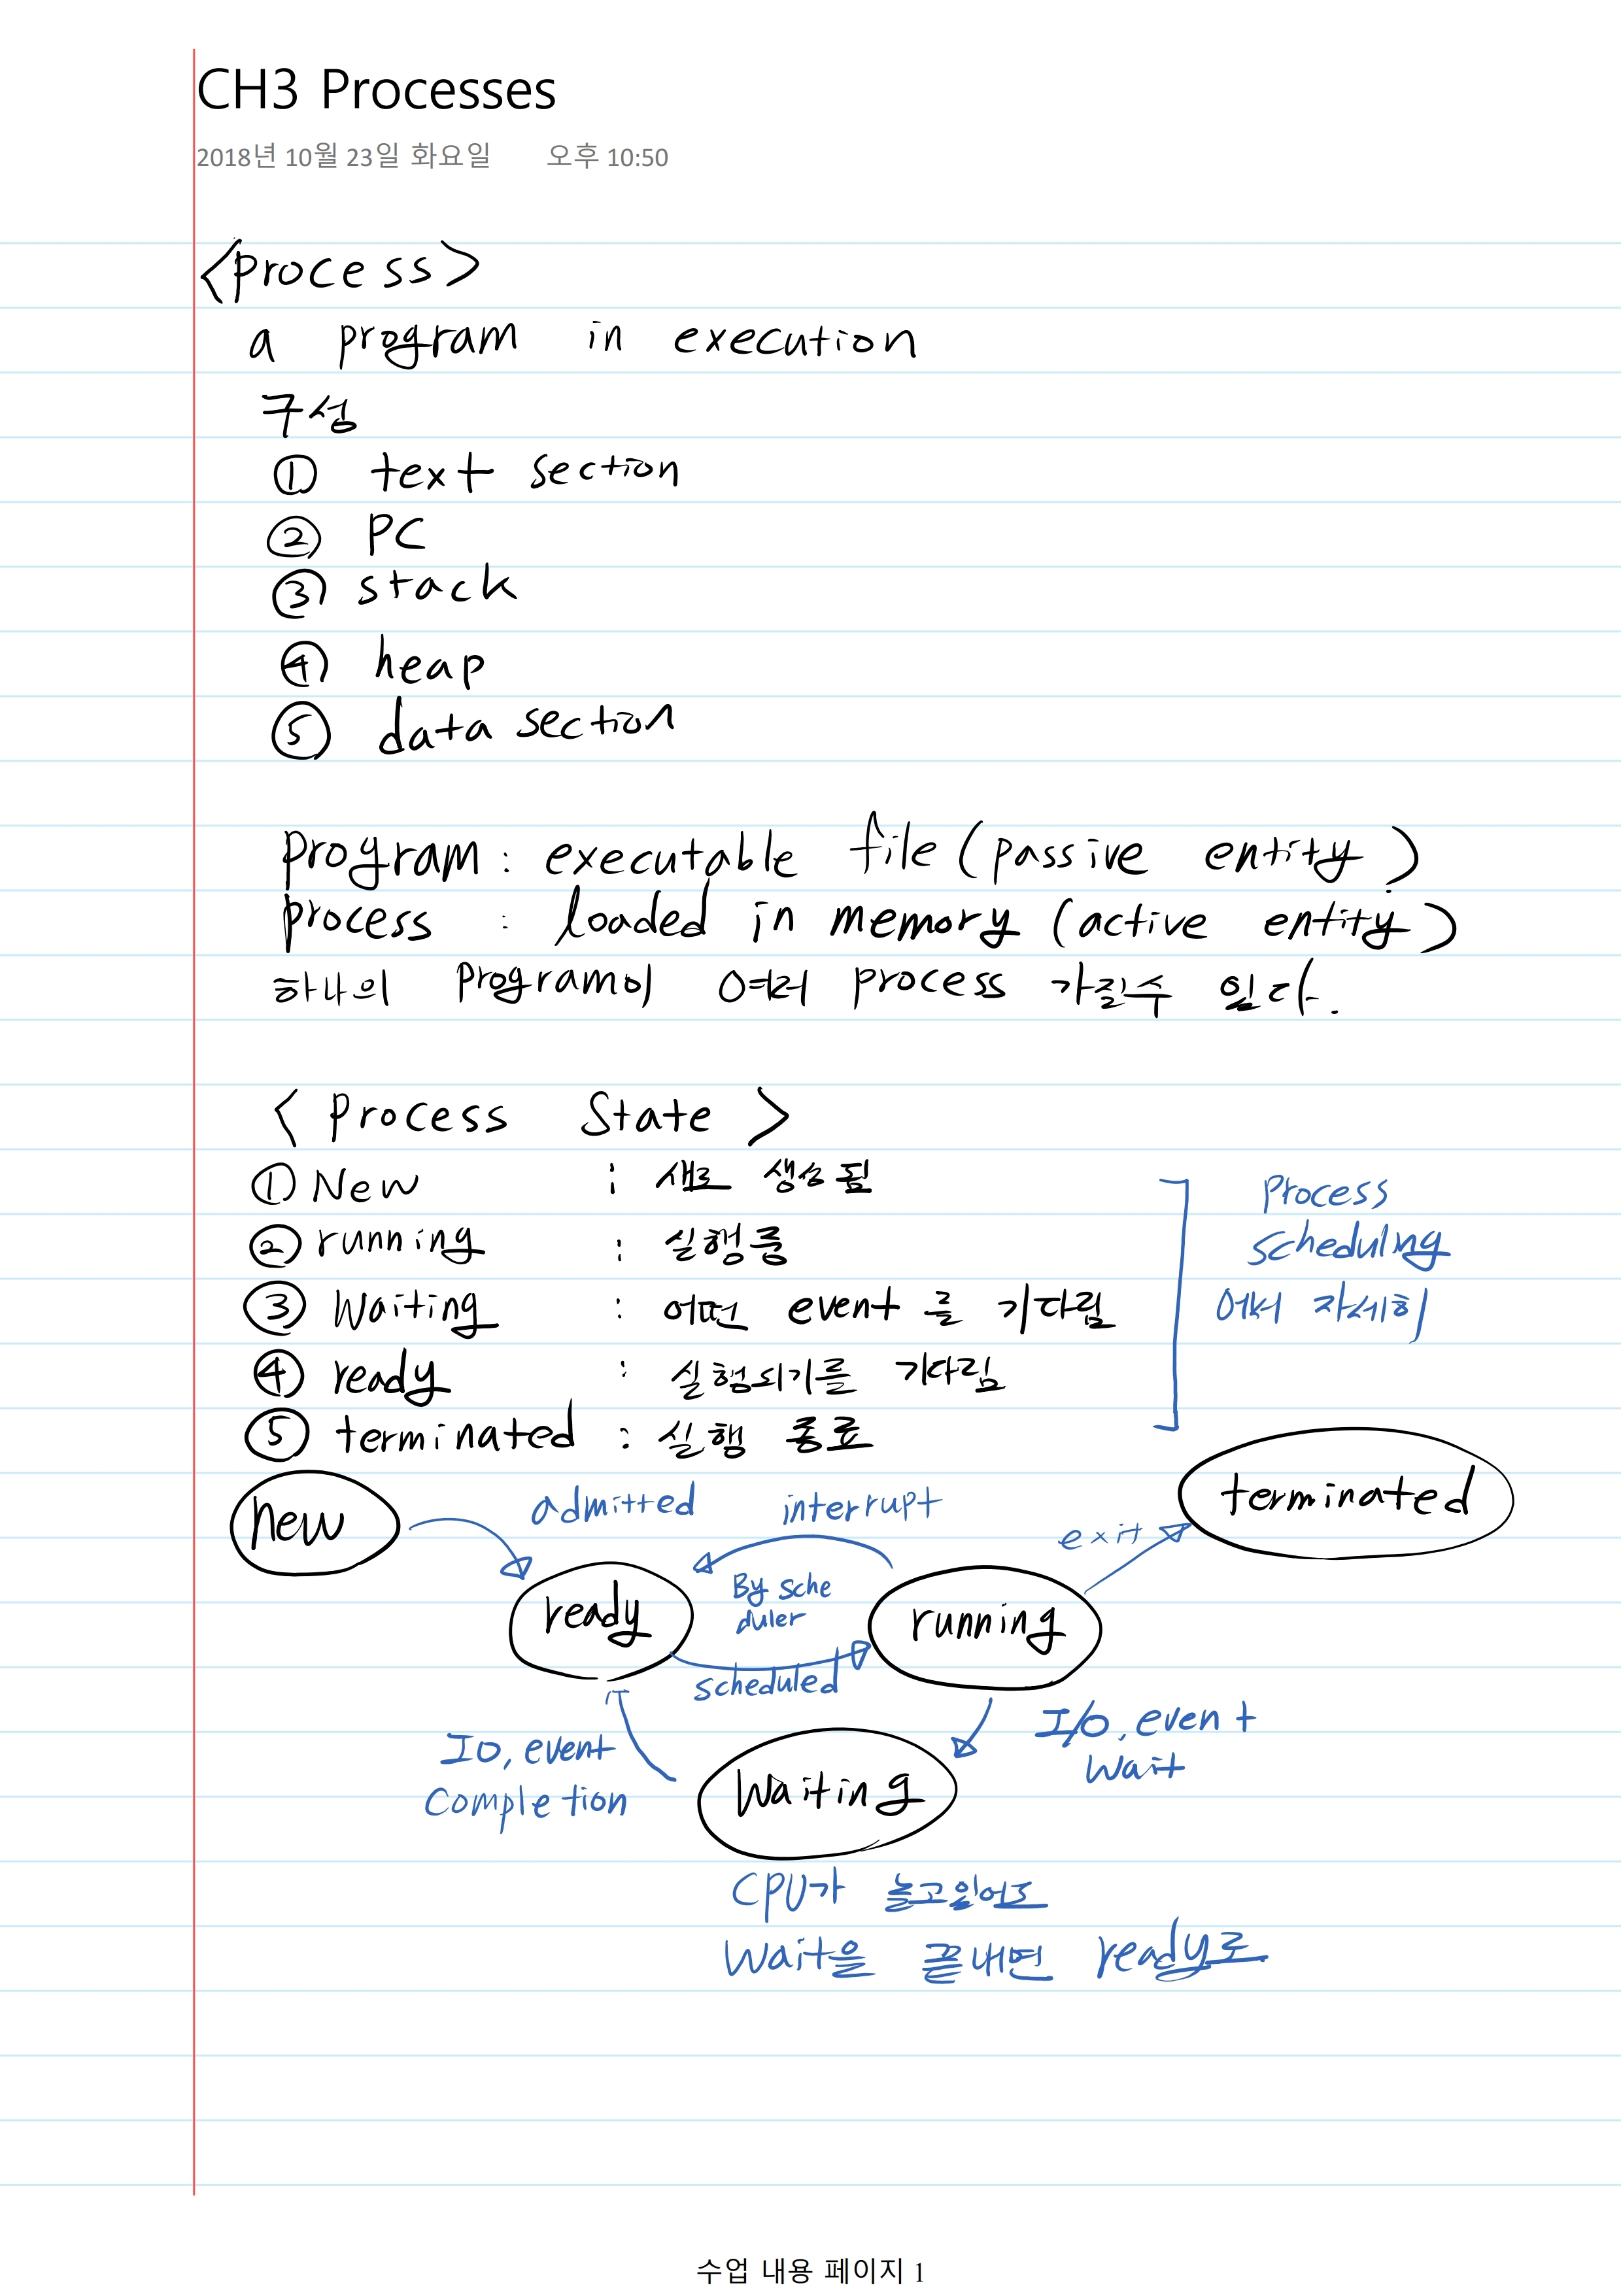 CH3 Processes
2018년 10월 23일 화요일 오후 10:50
<process>
a program in execution
구성
① text section
② PC
③ stack
④ heap
⑤ data section
program : executable file (passive entity)
process : loaded in memory (active entity)
하나의 program이 여러 process 가질수 있다.
< Process State >
① New : 새로 생성됨
② running : 실행중
③ Waiting : 어떤 event를 기다림
④ ready : 실행되기를 기다림
⑤ terminated : 실행 종료
Process
scheduling
에서 자세히
new
admitted
interrupt
exit
terminated
ready
By sche
duler
running
scheduled
IO, event
Completion
I/O, event
Wait
Waiting
CPU가 놀고있어도
Wait을 끝내면 ready로
수업 내용 페이지 1